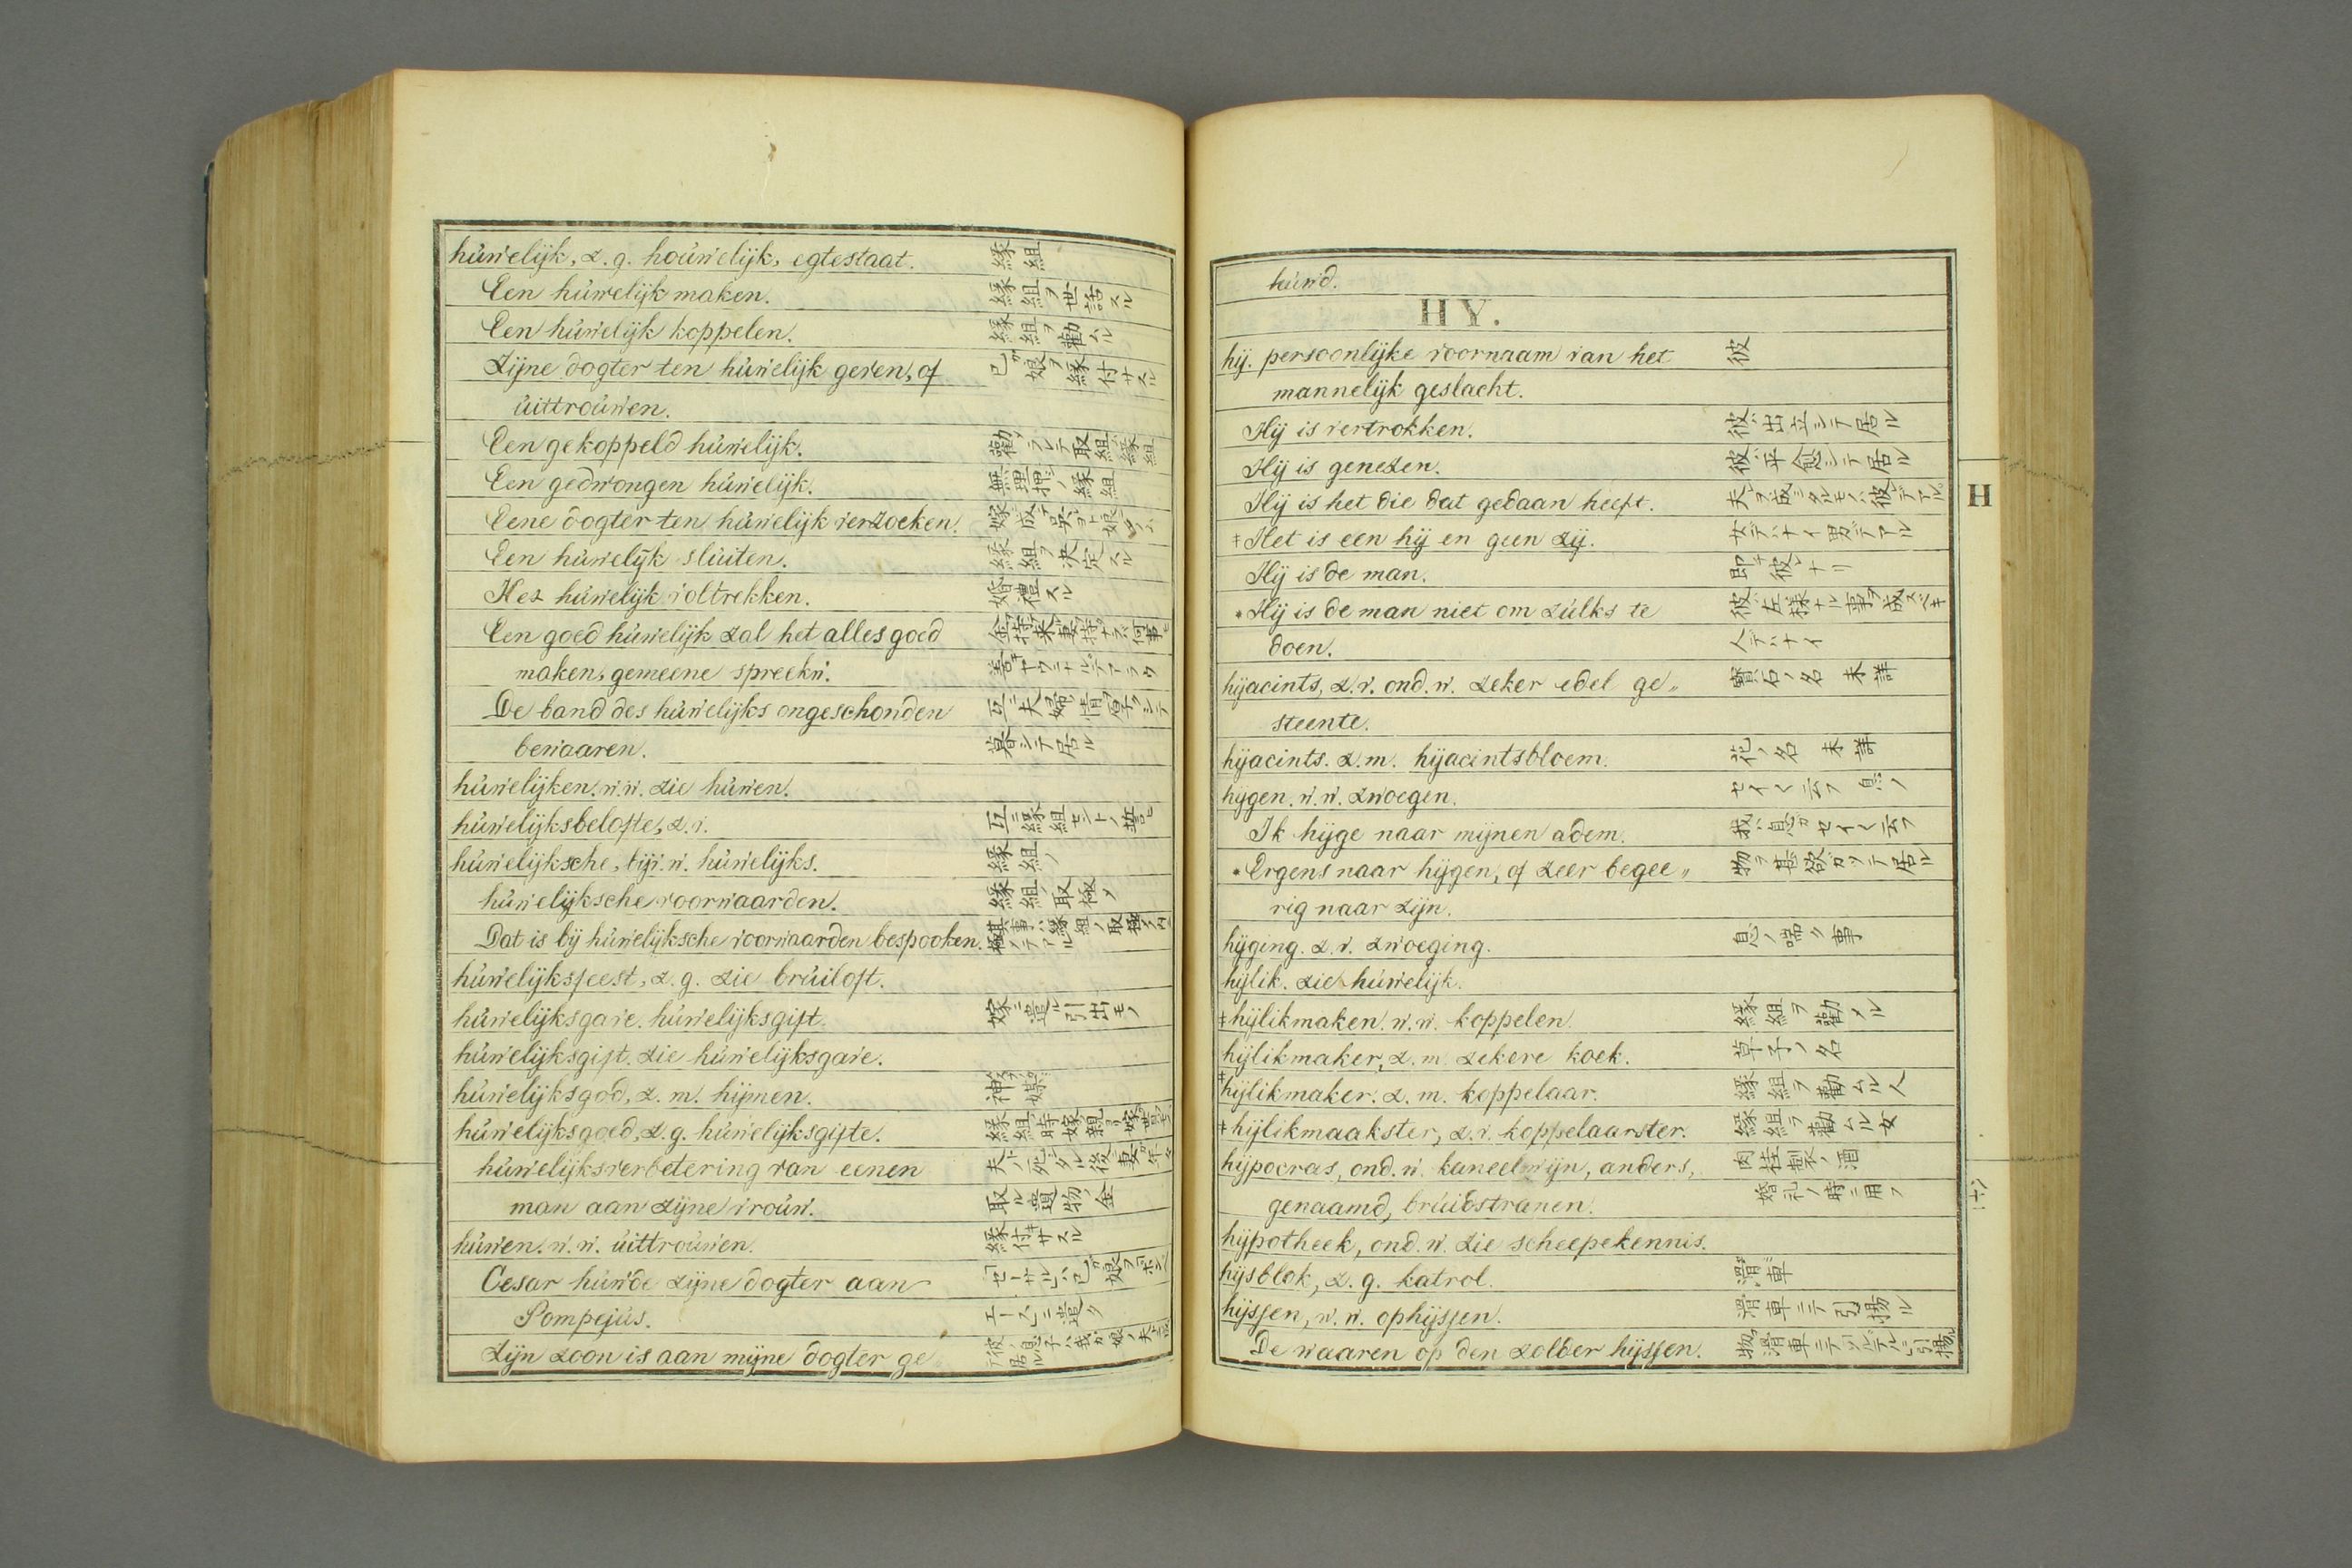 húwelijk, z. g. hoúwelijk, egtestaat. 縁組
Een húwelijk maken. 縁組ヲ世話スル
Een húwelijk koppelen. 縁組ヲ勸ムル
Zijne dogter ten húwelijk geven, of 己ガ娘ヲ縁付サスル
úittroúwen.
Een gekoppeld húwelijk. 勸ラレテ取組縁組
Een gedwongen húwelijk. 無理押ノ縁組
Eene dogter ten húwelijk verzoeken.
Een húwelijk slúiten. 縁組ヲ决定スル
Het húwelijk voltrekken. 婚禮スル
Een goed húwelijk zal het alles goed
maken, gemeene spreekw. 善キヤウニナルデアラウ
De band des húwelijks ongeschonden 互ニ夫婦情厚クシテ
bewaaren. 暮シテ居ル
húwelijken. w. w. zie húwen.
húwelijksbelofte, z. v. 互ニ縁組セントノ誓ヒ
húwelijksche, bijv. w. húwelijks. 縁組ノ
húwelijksche voorwaarden. 縁組ノ取極メ
Dat is bij húwelijksche voorwaarden bespooken.
húwelijksfeest, z. g. zie brúiloft.
húwelijksgave. húwelijksgift. 嫁ニ遣ル引出モノ
húwelijksgift. zie húwelijksgave.
húwelijksgod, z. m. hijmen.
húwelijksgoed, z. g. húwelijksgifte.
húwelijksverbetering van eenen 夫ノ死シタル後妻ガ年々
man aan zijne vroúw. 取ル遺物ノ金
húwen. w. w. úittroúwen. 縁付サスル
Cesar húwde zijne dogter aan
Pompejús. エースニ遣ク
Zijn zoon is aan mijne dogter ge
húwd.
HY.
hij. persoonlijke voornaam van het 彼
mannelijk geslacht.
Hij is vertrokken. 彼ハ出立シテ居ル
Hij is genezen. 彼ハ平愈シテ居ル
Hij is het die dat gedaan heeft. 夫ヲ成シタルモノハ彼デアル
‡ Het is een hij en geen zij. 女デハナイ男デアル
Hij is de man. 即チ彼レナリ
* Hij is de man niet om zúlks te 彼ハ左様ナル事ヲ成スベキ
doen. 人デハナイ
hijacints, z. v. ond. w. zeker edel ge„ 寶石ノ名 未詳
steente.
hijacints. z. m. hijacintsbloem. 花ノ名 未詳
hijgen. w. w. zwoegen. セイ〱云フ 息ノ
Ik hijge naar mijnen adem. 我ハ息ガセイ〱云フ
* Ergens naar hijgen, of zeer begee„ 物ヲ甚欲ガツテ居ル
rig naar zijn.
hijging. z. v. zwoeging. 息ノ喘ク事
hijlik. zie húwelijk.
‡ hijlikmaken. w. w. koppelen. 縁組ヲ勸メル
hijlikmaker, z. m. zekere koek. 草子ノ名
‡ hijlikmaker. z. m. koppelaar. 縁組ヲ勸ムル人
‡ hijlikmaakster, z. v. koppelaarster. 縁組ヲ勸ムル女
hijpocras, ond. w. kaneelwijn, anders, 肉桂製ノ酒
genaamd, brúidstranen. 婚礼ノ時ニ用フ
hijpotheek, ond. w. zie scheepekennis.
hijsblok, z. g. katrol. 滑車
hijssen, w. w. ophijssen. 滑車ニテ引揚ル
De waaren op den zolder hijssen.
H